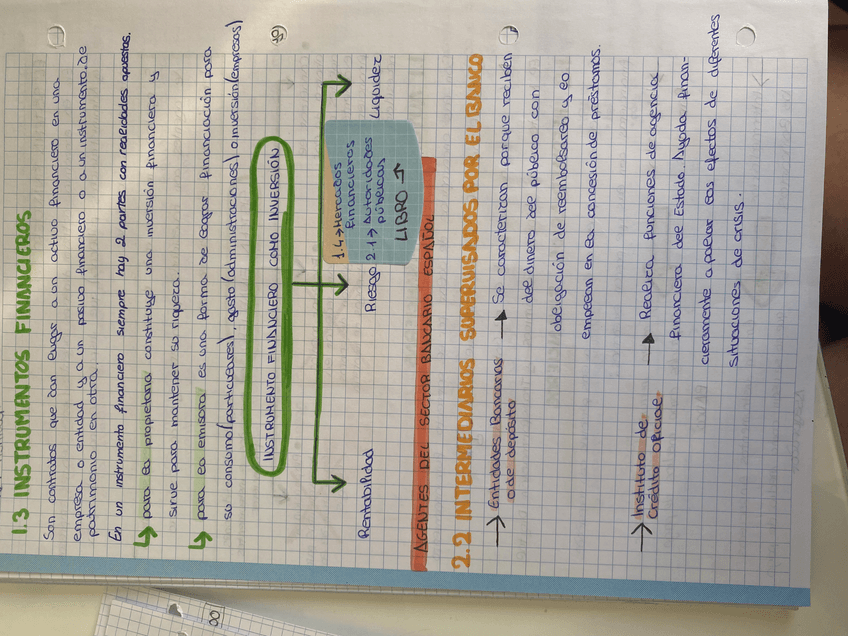 1.3 INSTRUMENTOS FINANCIEROS
Son contratos que dan lugar a un activo financiero en una
empresa o entidad y a un pasivo financiero o a un instrumento de
patrimonio en otra.
En un instrumento financiero siempre hay 2 partes con realidades opuestas.
↳ para la propietaria constituye una inversión financiera y
sirve para mantener su riqueza.
↳ para la emisora es una forma de lograr financiación para
su consumo (particulares), gasto (administraciones) o inversión (empresas)
INSTRUMENTO FINANCIERO COMO INVERSIÓN
Rentabilidad
Riesgo
Liquidez
1.4→Mercados
financieros
2.1→Autoridades
públicas
LIBRO→
AGENTES DEL SECTOR BANCARIO ESPAÑOL
2.2 INTERMEDIARIOS SUPERVISADOS POR EL BANCO
→ Entidades Bancarias
o de depósito
→ Se caracterizan porque reciben
del dinero del público con
obligación de reembolsarlo y lo
emplean en la concesión de préstamos.
→ Instituto de
Crédito Oficial
→ Realiza funciones de agencia
financiera del Estado. Ayuda finan-
cieramente a paliar los efectos de diferentes
situaciones de crisis.